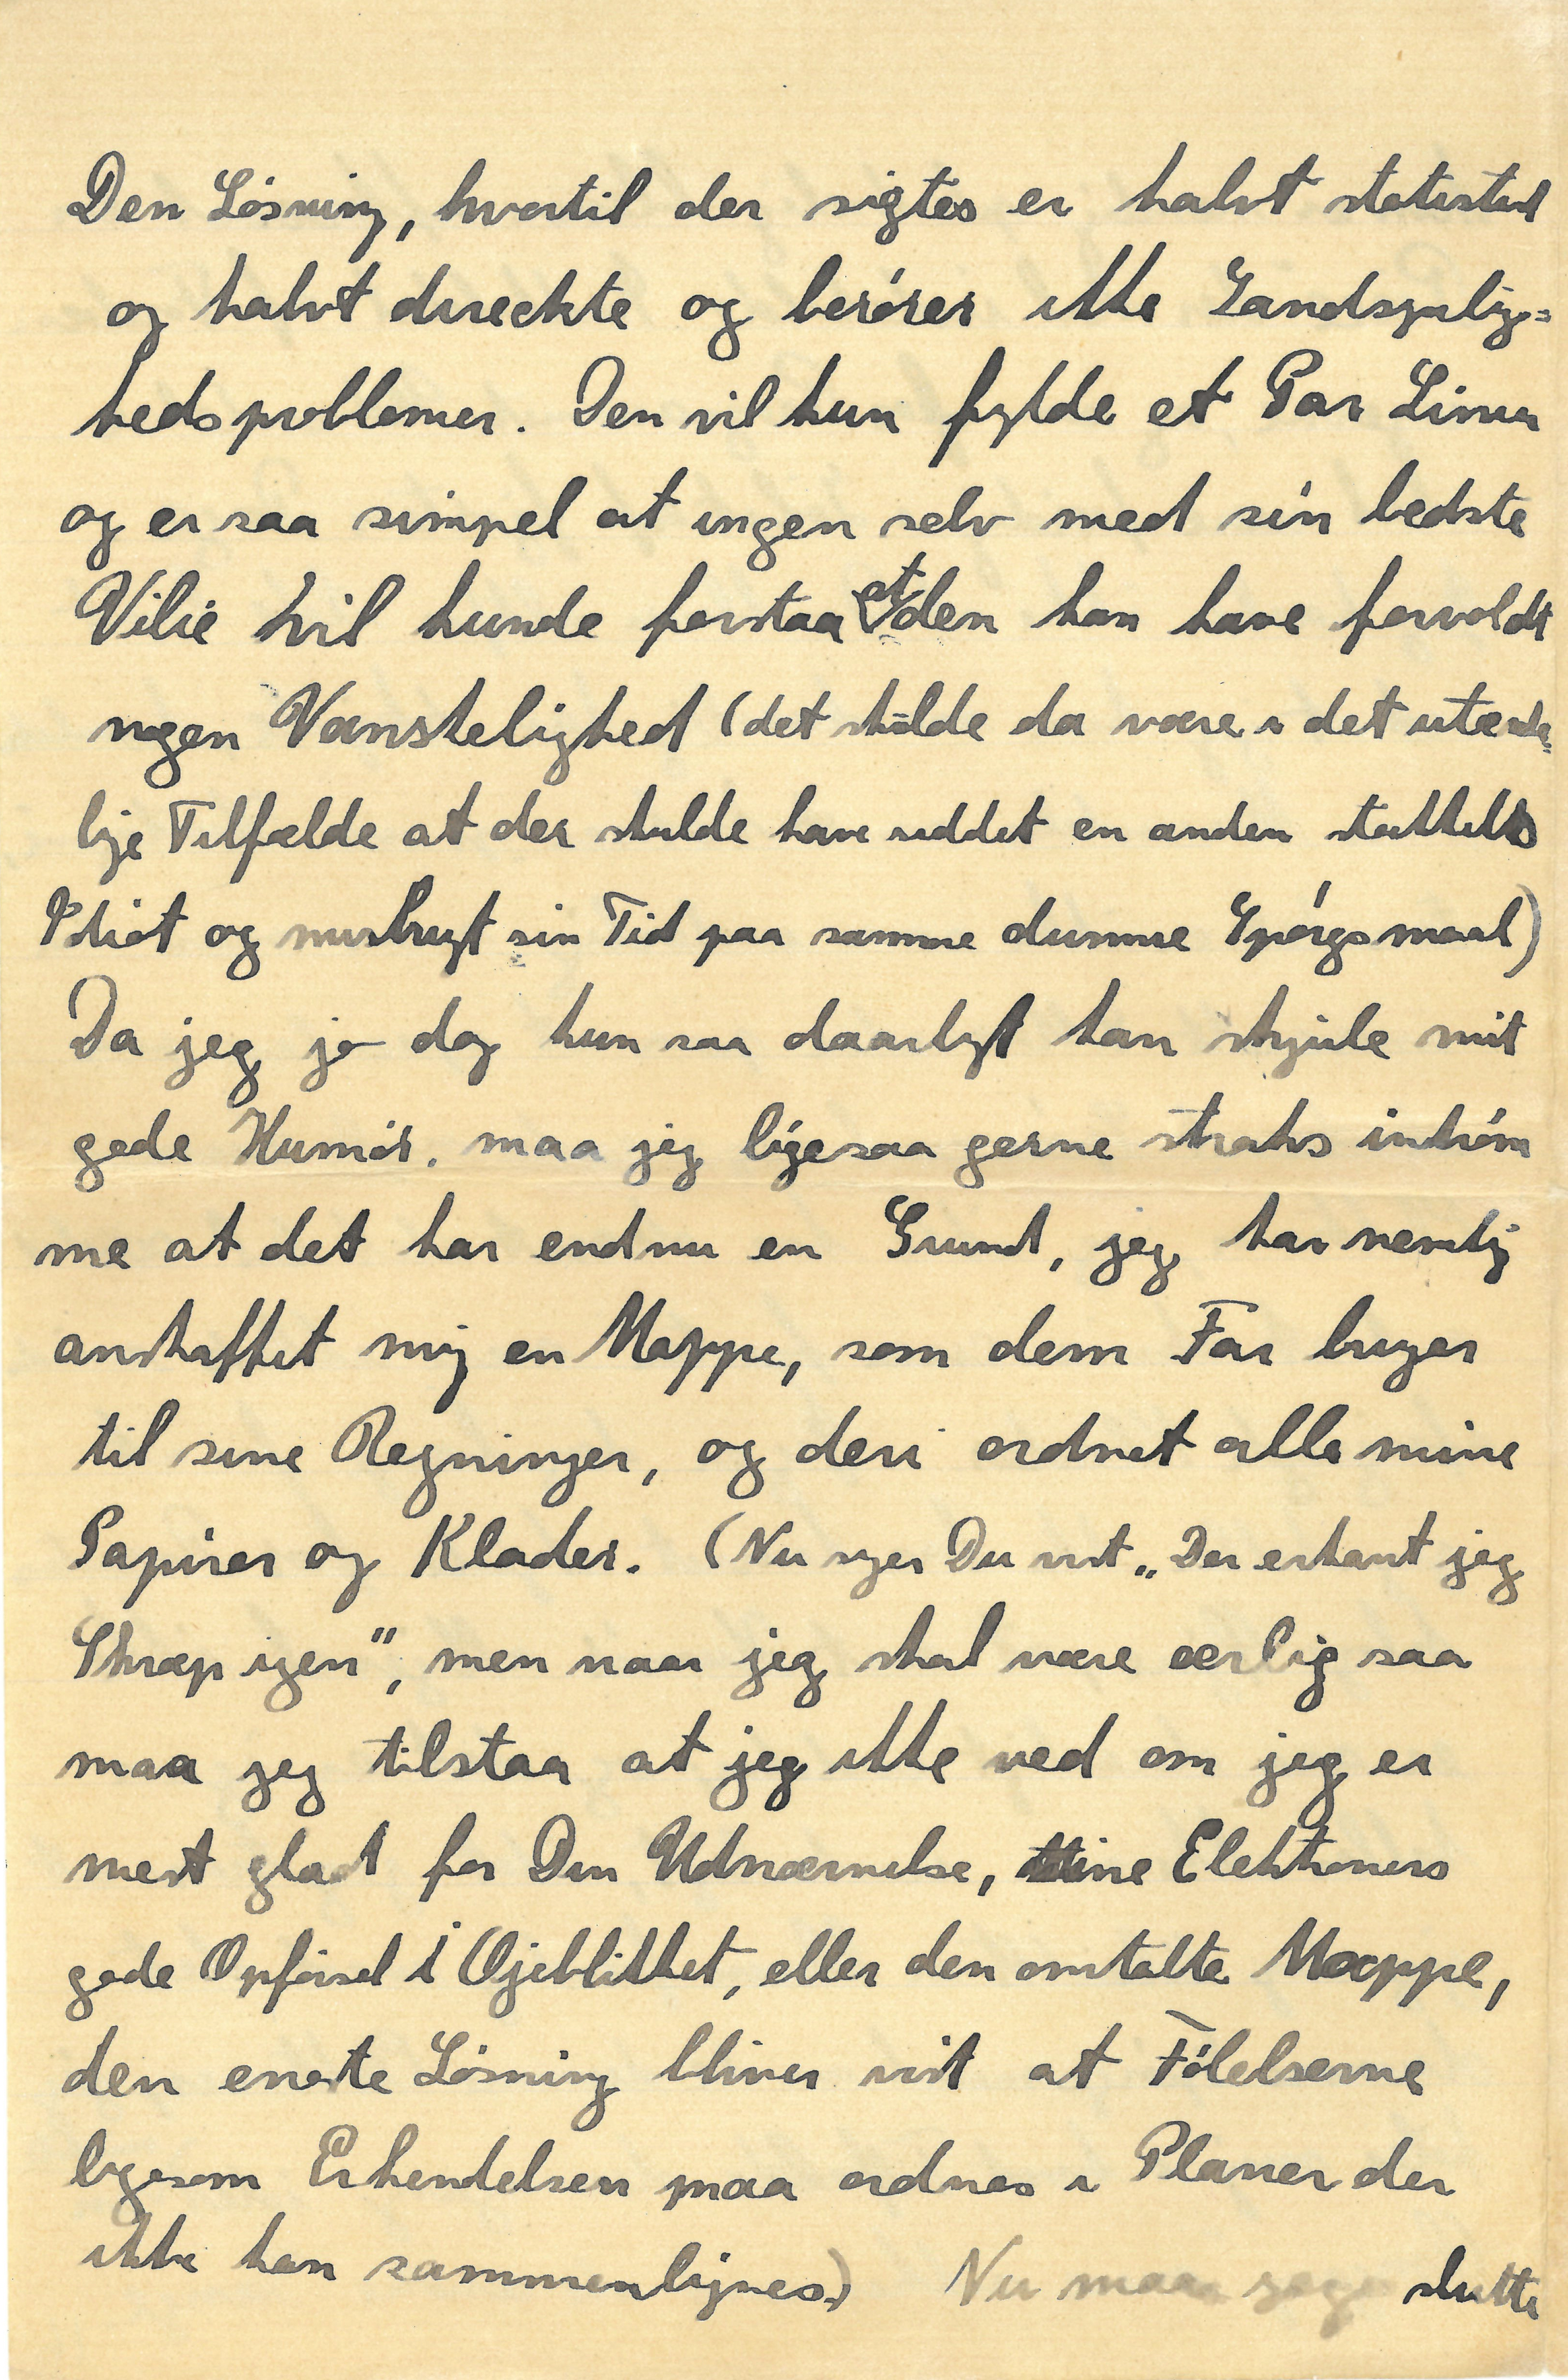 Den Løsning, hvortil der sigtes er halvt statistisk
og halvt direckte og berører ikke Sandsynlig=
hedsproblemer. Den vil kun fylde et Par Linier
og er saa simpel at ingen selv med sin bedste
Vilie vil kunde forstaa at den kan have forvoldt
nogen Vanskelighed (det skulde da være i det utænke=
lige Tilfælde at der skulde have siddet en anden stakkels
Idiot og misbrugt sin Tid paa samme dumme Spørgsmaal)
Da jeg jo dog kun saa daarligt kan skjule mit
gode Humør. maa jeg ligesaa gerne straks indrøm
me at det har endnu en Grund, jeg har nemlig
anskaffet mig en Mappe, som dem Far bruger
til sine Regninger, og deri ordnet alle mine
Papirer og Klader. (Nu siger Du vist „Der erkant jeg
Skræp igen“, men naar jeg skal være ærlig saa
maa jeg tilstaa at jeg ikke ved om jeg er
mest glad for Din Udnærnelse, mine Elektroners
gode Opførsel i Øjeblikket, eller den omtalte Mappe,
den eneste Løsning bliver vist at Følelserne
ligesom Erkendelsen maa ordnes i Planer der
ikke kan sammenlignes.) Nu maa jeg slutte